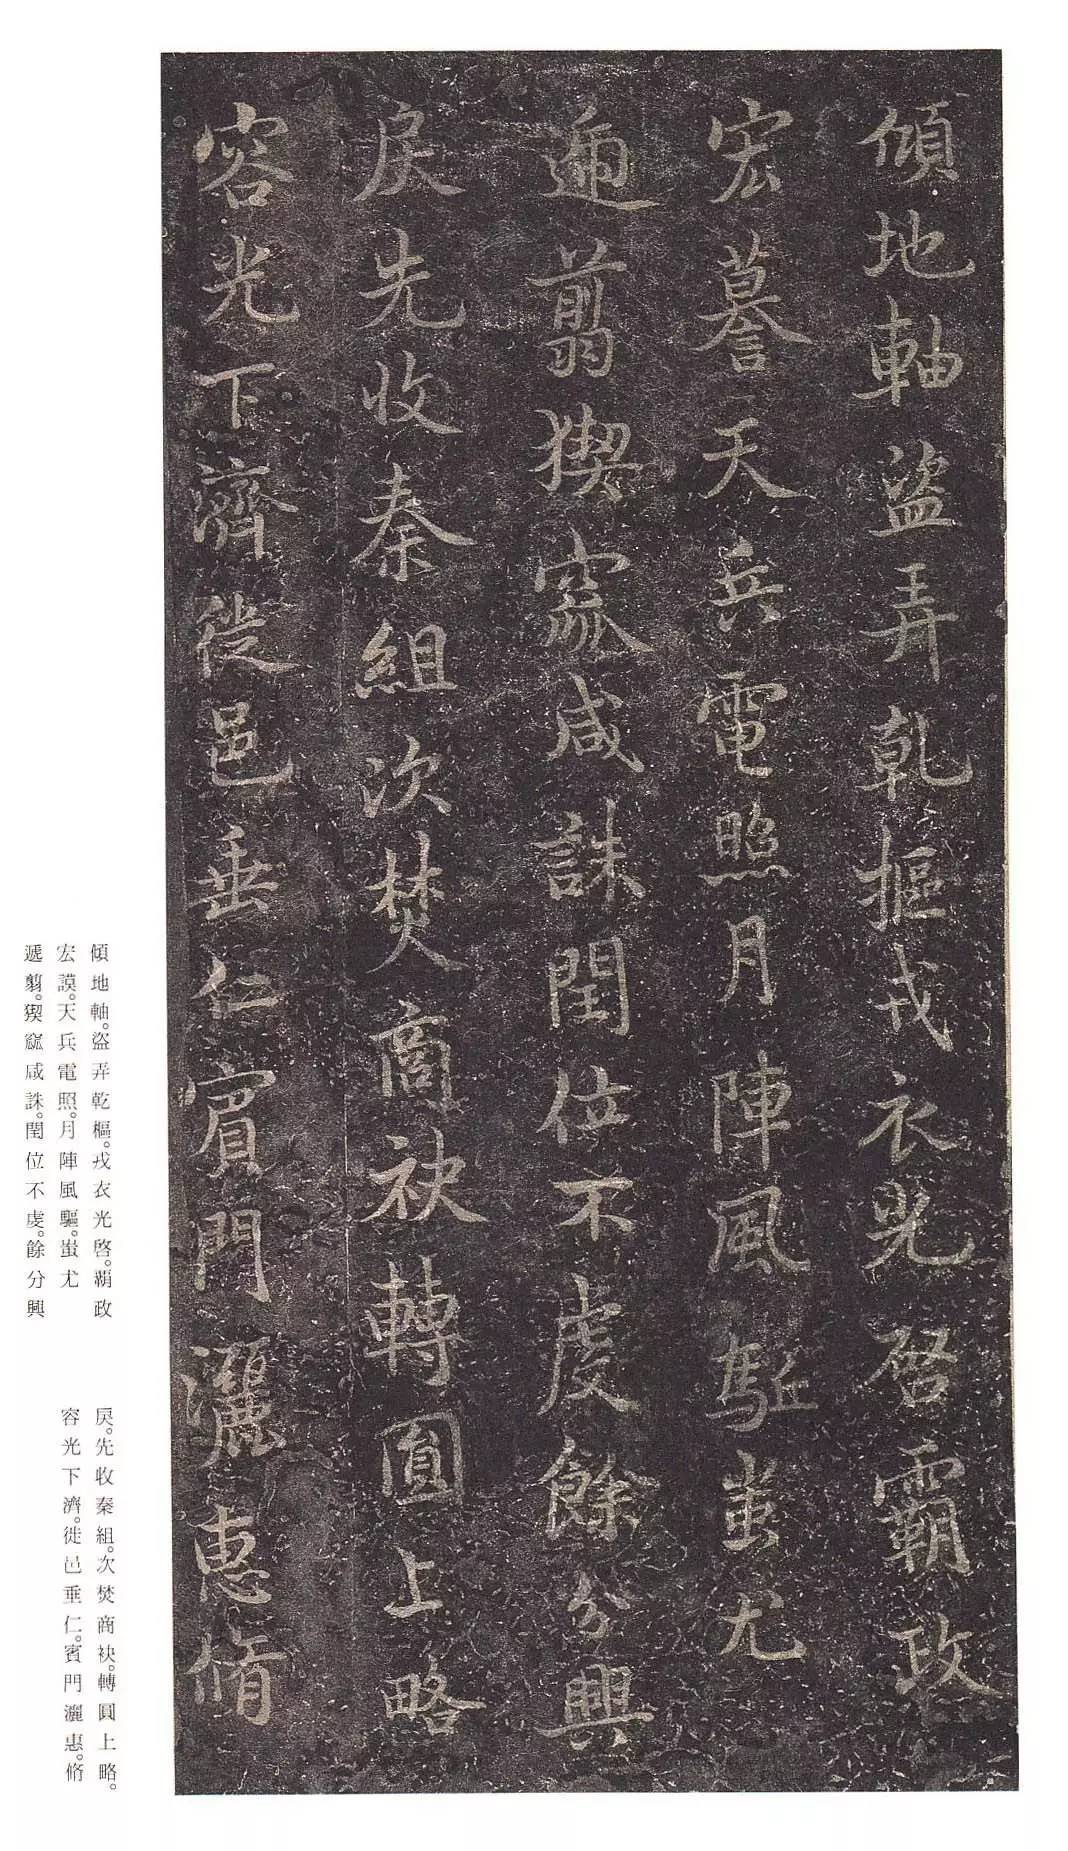 傾地軸盜弄乾樞戎衣光啓霸政
宏謩天兵電照月陣風駈蚩尤
遞翦猰窳咸誅閏位不虔餘分興
戾先收秦組次焚商袂轉圓上略
容光下濟徙邑垂仁賓門灑惠脩
傾地軸。盜弄乾樞。戎衣光啓。覇政
宏謨。天兵電照。月陣風驅。蚩尤
遞翦。猰窳咸誅。閏位不虔。餘分興
戾。先收秦組。次焚商袂。轉圓上略。
容光下濟。徙邑垂仁。賓門灑惠。脩